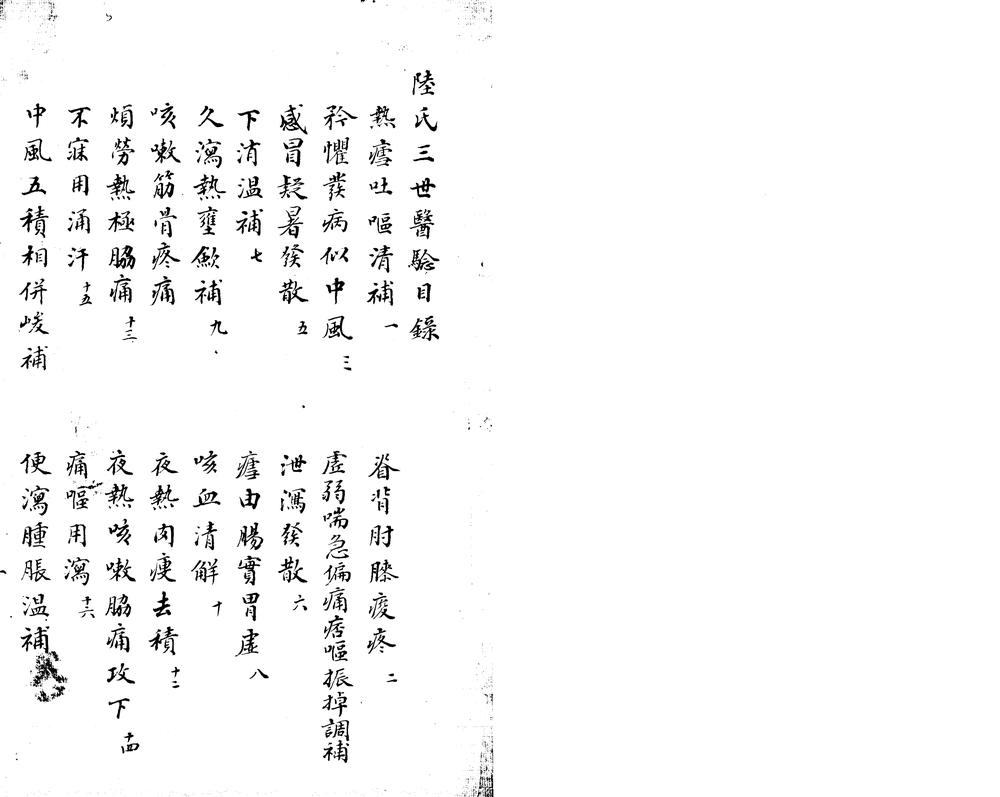 陸氏三世醫驗目錄
熱瘧吐嘔清補 一
脊背肘膝痠疼 二
矜懼發病似中風 三
虛弱喘急偏痛痞嘔振掉調補
感冒疑暑發散 五
泄瀉發散 六
下消温補 七
瘧由腸實胃虛 八
久瀉熱壅歛補 九
咳血清解 十
咳嗽筋骨疼痛
夜熱肉痩去積 十二
煩勞熱極脇痛 十三
夜熱咳嗽脇痛攻下 十四
不寐用涌汗 十五
痛嘔用瀉 十六
中風五積相併峻補
便瀉腫脹温補